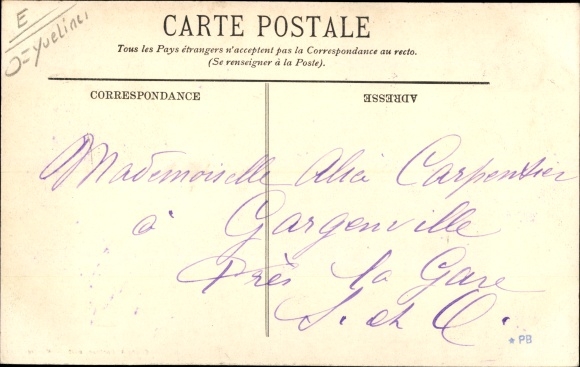 E
O=Yvelines
CARTE POSTALE
Tous les Pays étrangers n'acceptent pas la Correspondance au recto.
(Se renseigner à la Poste).
CORRESPONDANCE
ADRESSE
Mademoiselle Alice Carpentier
à Gargenville
Près la Gare
S. et O.
* PB